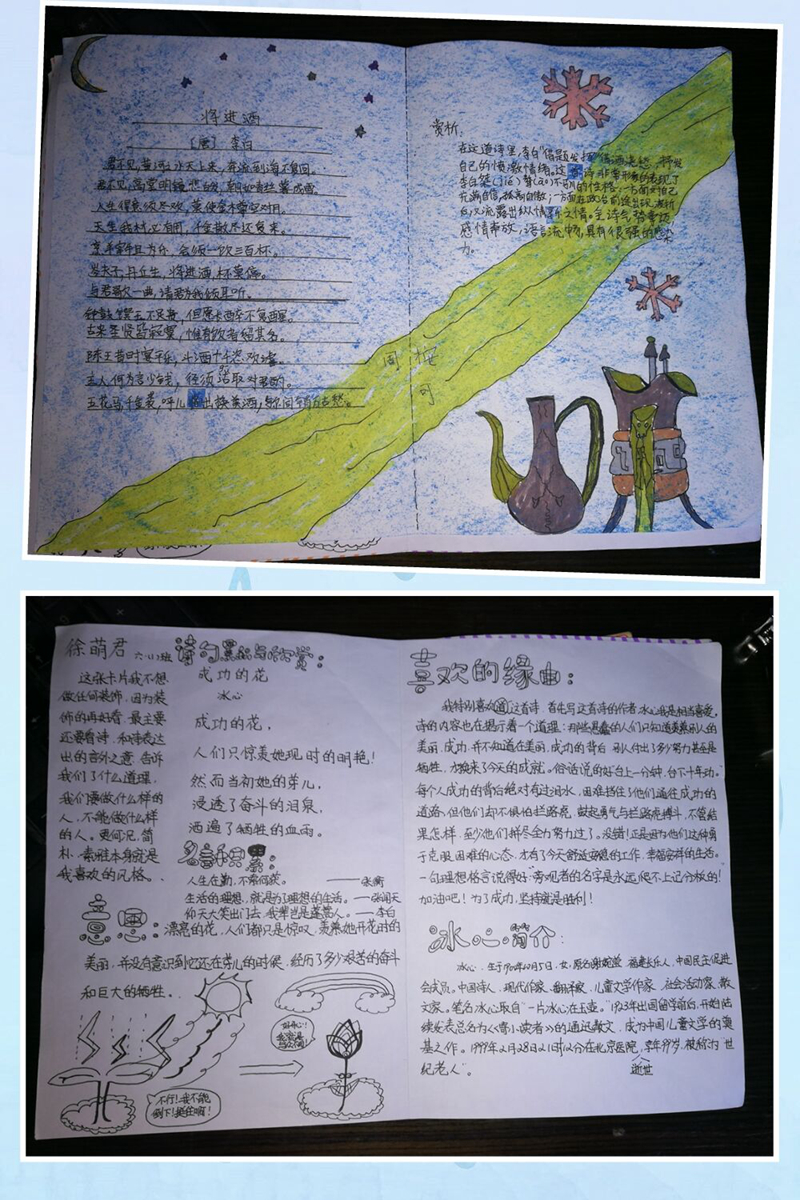 将进酒
〔唐〕 李白
君不见,黄河之水天上来,奔流到海不复回。
君不见,高堂明镜悲白发,朝如青丝暮成雪。
人生得意须尽欢,莫使金樽空对月。
天生我材必有用,千金散尽还复来。
烹羊宰牛且为乐,会须一饮三百杯。
岑夫子,丹丘生,将进酒,杯莫停。
与君歌一曲,请君为我倾耳听。
钟鼓馔玉不足贵,但愿长醉不复醒。
古来圣贤皆寂寞,惟有饮者留其名。
陈王昔时宴平乐,斗酒十千恣欢谑。
主人何为言少钱,径须沽取对君酌。
五花马,千金裘,呼儿将出换美酒,与尔同销万古愁。
赏析:
在这首诗里,李白"借题发挥"借酒浇愁,抒发
自己的愤激情绪。这首诗非常形象的表现了
李白桀(jié)骜(ào)不驯的性格:一方面对自己
充满自信,孤高自傲;一方面在政治前途出现波折
后,又流露出纵情享乐之情。全诗气势豪迈,
感情奔放,语言流畅,具有很强的感染
力。
徐萌君 六(1)班
这张卡片我不想
做任何装饰,因为装
饰的再好看,最主要
还要看诗,和诗表达
出的言外之意,告诉
我们了什么道理,
我们要做什么样的
人,不能做什么样
的人。更何况,简
朴、素雅本身就是
我喜欢的风格。
诗句累积与欣赏:
成功的花
冰心
成功的花,
人们只惊羡她现时的明艳!
然而当初她的芽儿,
浸透了奋斗的泪泉,
洒遍了牺牲的血雨。
人生在勤,不索何获。 ——张衡
生活的理想,就是为了理想的生活。——张闻天
仰天大笑出门去,我辈岂是蓬蒿人。——李白
意思:漂亮的花,人们都只是惊叹,羡慕她开花时的
美丽,并没有意识到它还在芽儿的时候,经历了多少艰苦的奋斗
和巨大的牺牲。
不行!我不能
倒下!挺住啊!
喜欢的缘由:
我特别喜欢这首诗,首先写这首诗的作者,冰心我是相当喜爱。
诗的内容也在揭示着一个道理:那些愚蠢的人们只知道羡慕别人的
美丽,成功,并不知道在美丽,成功的背后,别人付出了多少努力甚至是
牺牲,方换来了今天的成就。俗话说的好台上一分钟,台下十年功。
每个人成功的背后绝对有过泪水,困难挡住了他们通往成功的
道路,但他们却不惧怕拦路虎,鼓起勇气与拦路虎搏斗,不管结
果怎样,至少他们都尽全力努力过了。没错!正是因为他们这种勇
于克服困难的心态,才有了今天舒适安稳的工作,幸福安祥的生活。
一句理想格言说得好:旁观者的名字是永远爬不上记分板的!
加油吧!为了成功,坚持就是胜利!
冰心简介:
冰心,生于1900年10月5日,女,原名谢婉莹,福建长乐人,中国民主促进
会成员。中国诗人,现代作家、翻译家、儿童文学作家、社会活动家、散
文家。笔名冰心取自"一片冰心在玉壶。"1923年出国留学前后,开始陆
续发表总名为《寄小读者》的通讯散文,成为中国儿童文学的奠
基之作。1999年2月28日21时12分在北京医院逝世,享年99岁,被称为"世
纪老人"。